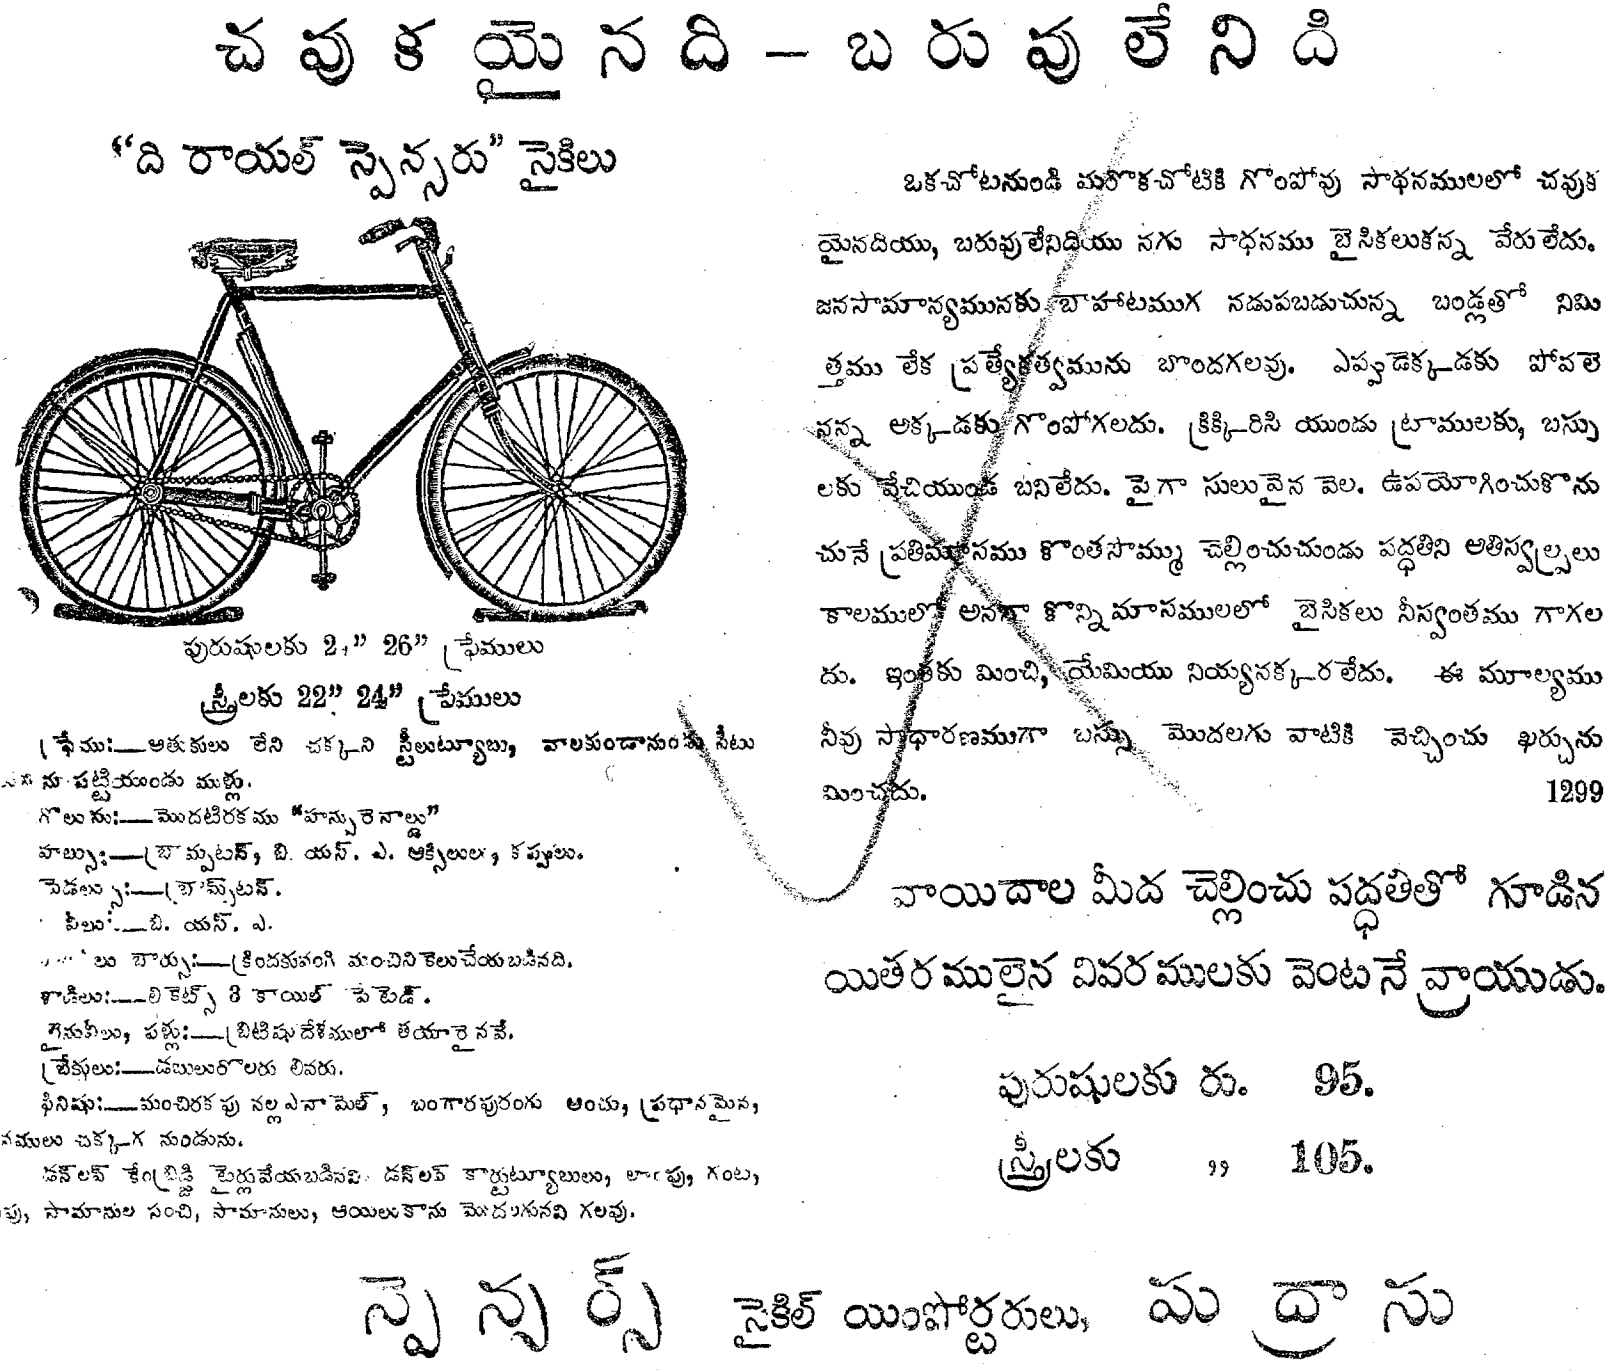 చవుకయైనది – బరువులేనిది
“ది రాయల్ స్పెన్సరు” సైకిలు
పురుషులకు 26” ఫ్రేములు
స్త్రీలకు 22” 24” ఫ్రేములు
ఫ్రేము:—అతుకులు లేని చక్కని స్టీలుట్యూబు, వాలకుండానుండు సీటు
ను పట్టియుండు మళ్లు.
గొలుసు:—మొదటిరకము “హన్సురెనాల్డు”
హబ్సు:—బ్రాంప్టన్, బి. యస్. ఎ. ఆక్సిలులు, కప్పులు.
పెడల్సు:—బ్రాంప్టన్.
వీలు:—బి. యస్. ఎ.
క్రిందకువంగి మంచినికెలుచేయబడినది.
శాడిలు:—లికెట్స్ 3 కాయిల్ పేటెడ్.
చైనువీలు, పళ్లు:—బ్రిటిషుదేశములో తయారైనవే.
బ్రేకులు:—డబులురొలరు లివరు.
ఫినిషు:—మంచిరకపు నల్లఎనామెల్, బంగారపురంగు అంచు, ప్రధానమైన,
నములు చక్కగ నుండును.
డన్‌లప్ కేంబ్రిడ్జి టైర్లువేయబడినవి. డన్‌లప్ కార్డుట్యూబులు, లాంపు, గంట,
పు, సామానుల సంచి, సామానులు, ఆయిలుకాను మొదలగునవి గలవు.
ఒకచోటనుండి మరొకచోటికి గొంపోవు సాధనములలో చవుక
యైనదియు, బరువులేనిదియు నగు సాధనము బైసికలుకన్న వేరులేదు.
జనసామాన్యమునకు బాహాటముగ నడుపబడుచున్న బండ్లతో నిమి
త్తము లేక ప్రత్యేకత్వమును బొందగలవు. ఎప్పుడెక్కడకు పోవలె
నన్న అక్కడకు గొంపోగలదు. క్రిక్కిరిసి యుండు ట్రాములకు, బస్సు
లకు వేచియుండ బనిలేదు. పైగా సులువైన వెల. ఉపయోగించుకొను
చునే ప్రతిమాసము కొంతసొమ్ము చెల్లించుచుండు పద్ధతిని అతిస్వల్పలు
కాలములో అనగా కొన్నిమాసములలో బైసికలు నీస్వంతము గాగల
దు. ఇంతకు మించి, యేమియు నియ్యనక్కరలేదు. ఈ మూల్యము
నీవు సాధారణముగా బస్సు మొదలగు వాటికి వెచ్చించు ఖర్చును
మించదు. 1299
వాయిదాల మీద చెల్లించు పద్ధతితో గూడిన
యితరములైన వివరములకు వెంటనే వ్రాయుడు.
పురుషులకు రు. 95.
స్త్రీలకు ,, 105.
స్పెన్సర్స్ సైకిల్ యింపోర్టరులు, మద్రాసు